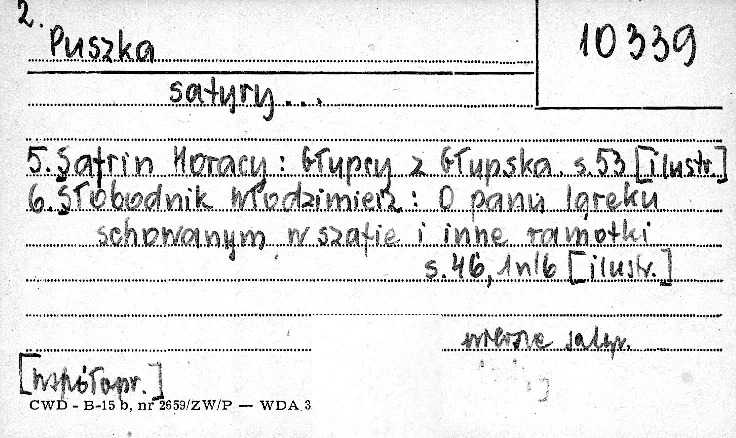 2.
Puszka
10339
satyry...
5. Safrin Horacy: Głupcy z Głupska. s.53 [ilustr.]
6. Słobodnik Włodzimierz: O panu Igreku
schowanym w szafie i inne ramotki
s.46, 1nlb [ilustr.]
wiersze satyr.
[współopr.]
CWD - B-15 b, nr 2659/ZW/P — WDA 3